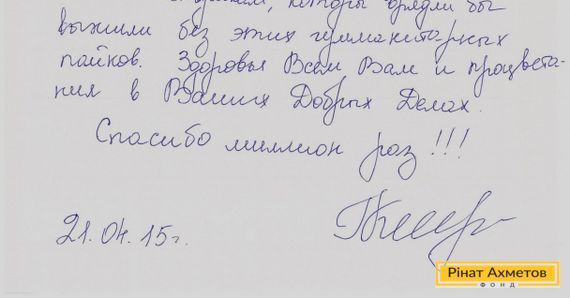 которы врядли бы
выжили без этих гуманитарных
пайков. Здоровья Всем Вам и процвета-
ния в Ваших Добрых Делах.
Спасибо миллион раз!!!
21.04.15г.
Рінат Ахметов
ФОНД